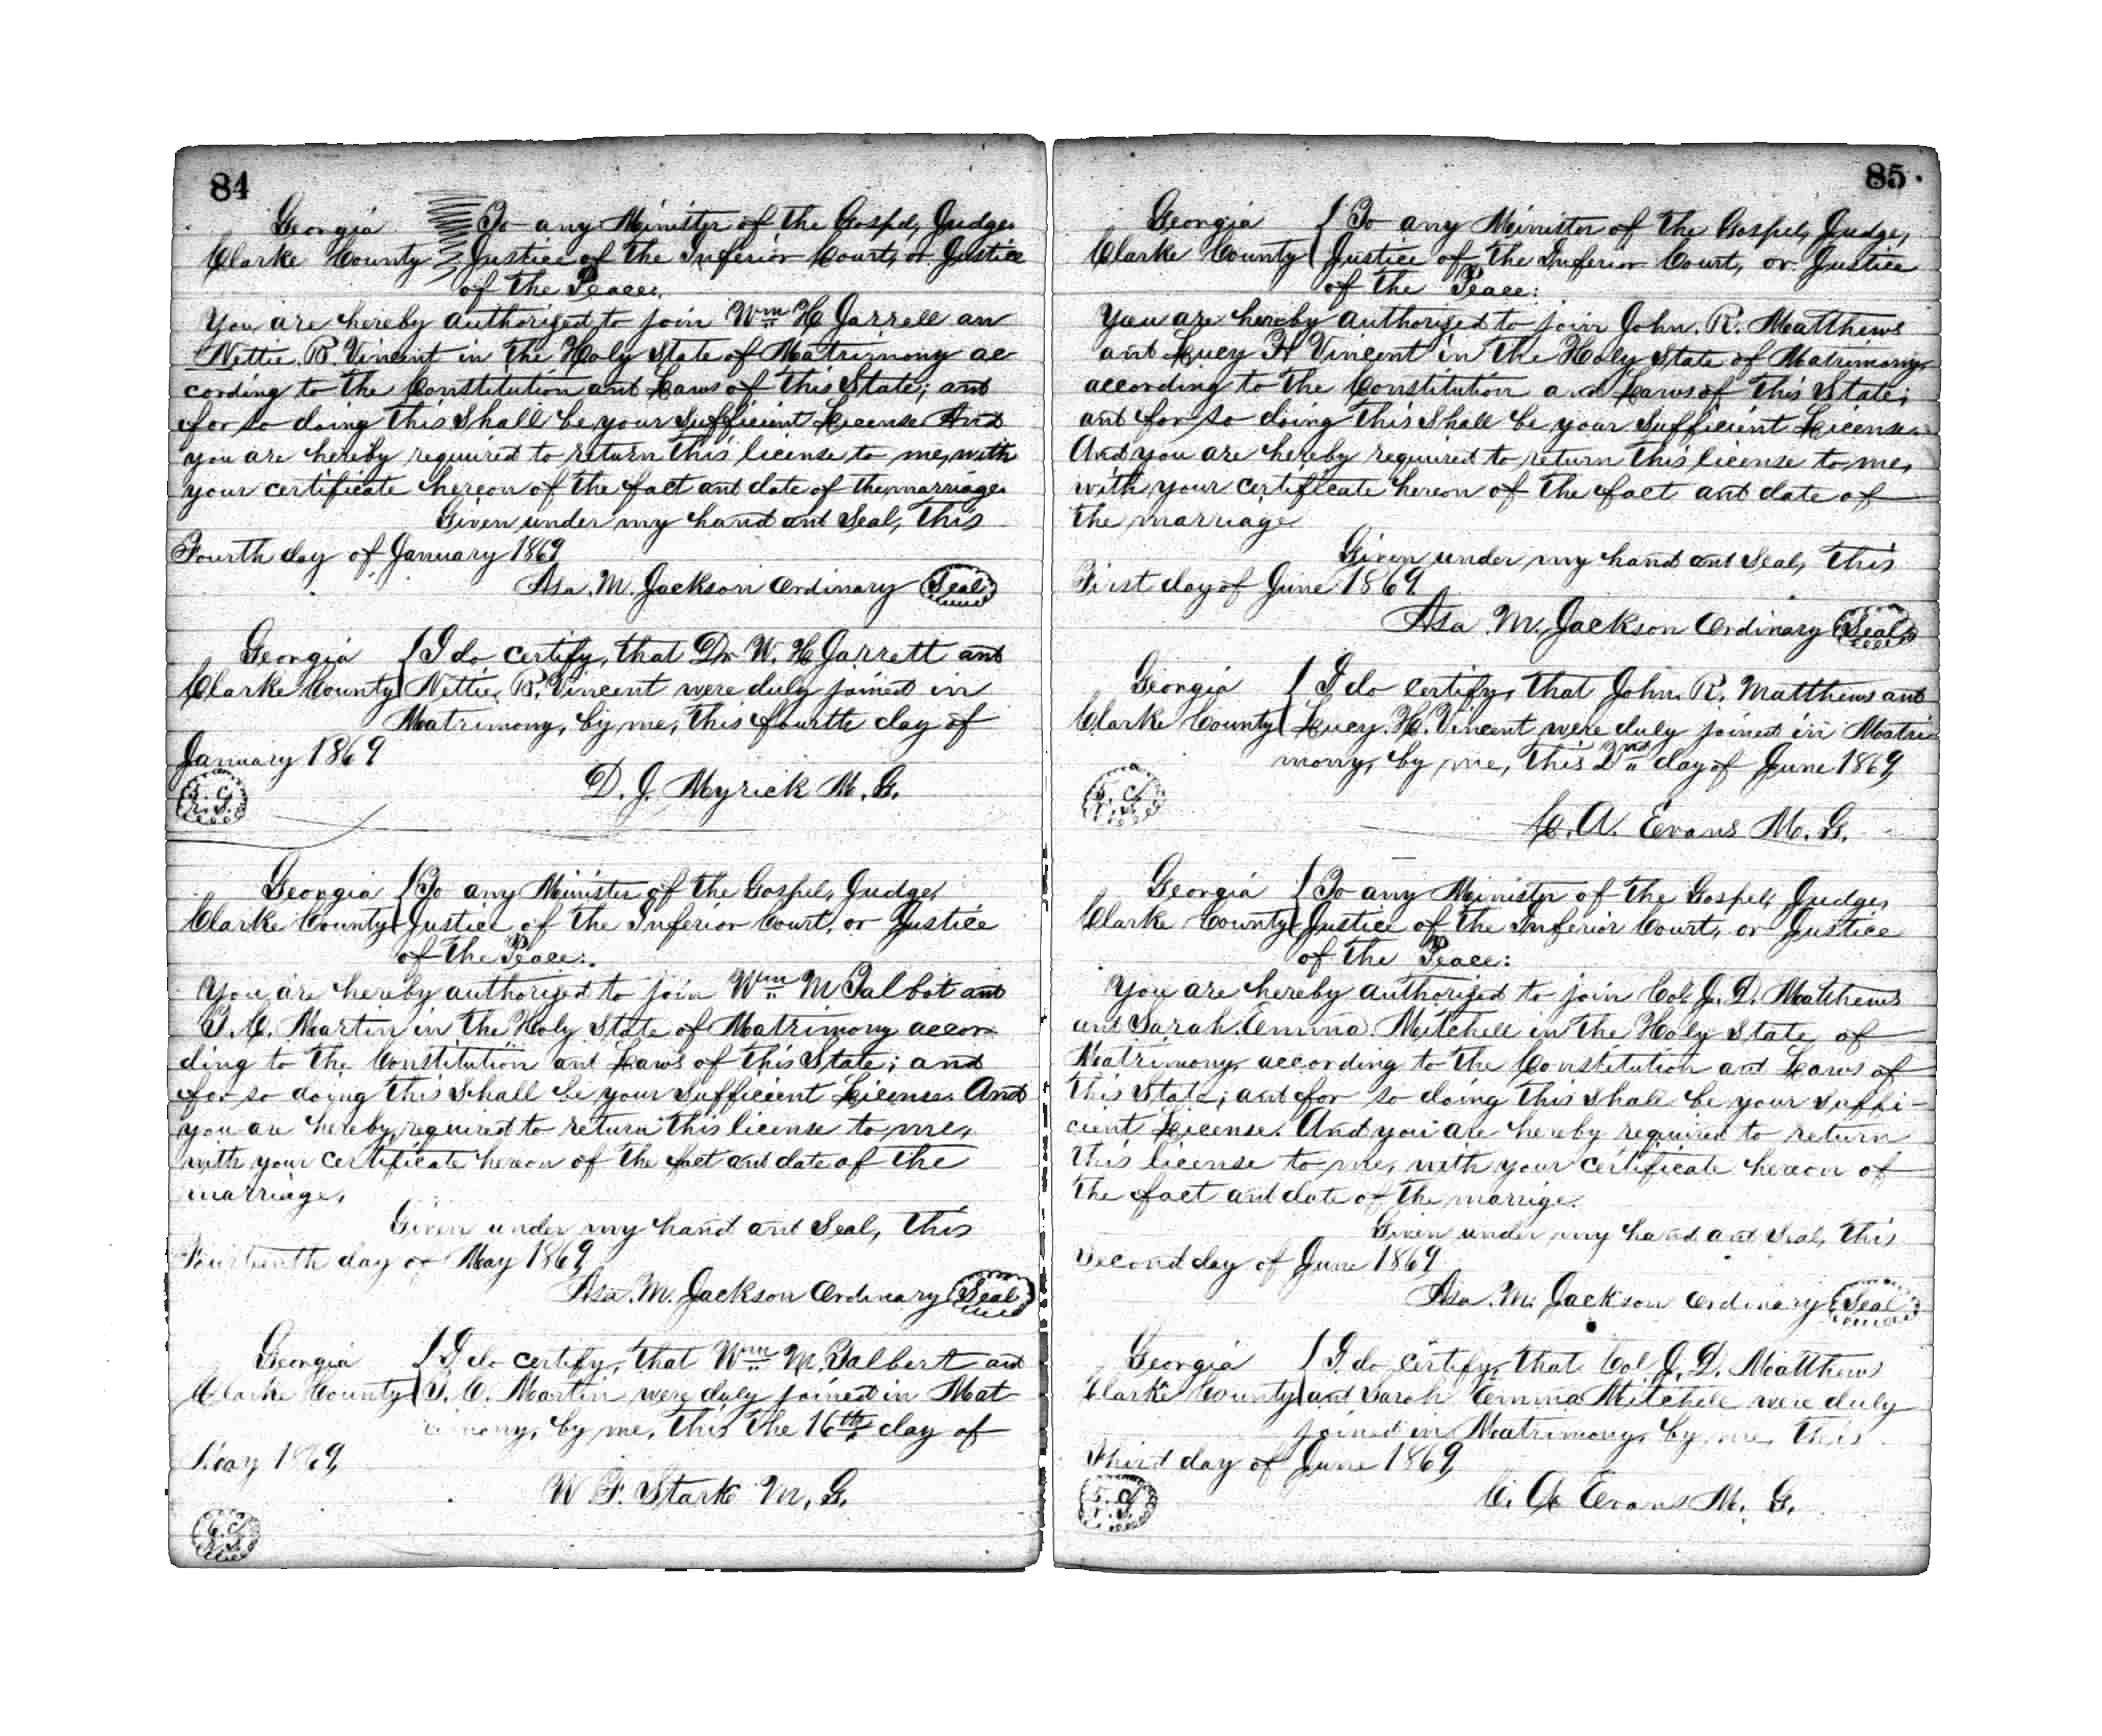 84
Georgia To any Minister of the Gospel, Judge,
Clarke County Justice of the Inferior Court, or Justice
of the Peace:
You are hereby authorized to join Wm H Jarrell an
Nettie. B. Vincent in the Holy State of Matrimony ac
cording to the Constitution and Laws of this State; and
for so doing this Shall be your Sufficient License And
you are hereby required to return this license to me, with
your certificate hereon of the fact and date of the marriage.
Given under my hand and Seal, this
Fourth day of January 1869
Asa. M. Jackson Ordinary Seal
Georgia I do certify, that Dr W. H Jarrett and
Clarke County Nettie, B. Vincent were duly joined in
Matrimony, by me, this fourth day of
January 1869
D. J. Myrick M. G.
Georgia To any Minister of the Gospel, Judge,
Clarke County Justice of the Inferior Court, or Justice
of the Peace:
You are hereby authorized to join Wm M Talbot and
T. C. Martin in the Holy State of Matrimony accor
ding to the Constitution and Laws of this State; and
for so doing this Shall be your Sufficient License. And
you are hereby required to return this license to me,
with your certificate hereon of the fact and date of the
marriage.
Given under my hand and Seal, this
Fourteenth day of May 1869,
Asa. M. Jackson Ordinary Seal
Georgia I do certify, that Wm M. Talbert and
Clarke County T. C. Martin were duly joined in Mat
rimony, by me, this the 16th day of
May 1869,
W F. Stark M. G.
85
Georgia To any Minister of the Gospel, Judge,
Clarke County Justice of the Inferior Court, or Justice
of the Peace:
You are hereby authorized to join John. R. Matthews
and Lucy H Vincent in the Holy State of Matrimony
according to the Constitution and Laws of this State;
and for so doing this Shall be your Sufficient License.
And you are hereby required to return this license to me,
with your certificate hereon of the fact and date of
the marriage
Given under my hand and Seal, this
First day of June 1869.
Asa M. Jackson Ordinary Seal
Georgia I do certify, that John. R. Matthews and
Clarke County Lucy. H. Vincent were duly joined in Matri
mony, by me, this 2nd day of June 1869,
C. A. Evans M. G.
Georgia To any Minister of the Gospel, Judge,
Clarke County Justice of the Inferior Court, or Justice
of the Peace:
You are hereby authorized to join Col. J. D. Matthews
and Sarah. Emma. Mitchell in the Holy State of
Matrimony, according to the Constitution and Laws of
this State; and for so doing this Shall be your suffi-
cient License. And you are hereby required to return
this license to me, with your certificate hereon of
the fact and date of the marrige.
Given under my hand and Seal, this
Second day of June 1869,
Asa. M. Jackson Ordinary Seal
Georgia I do certify, that Col. J. D. Matthews
Clarke County and Sarah Emma Mitchell were duly
joined in Matrimony, by me, this
Third day of June 1869,
C. A. Evans M. G.